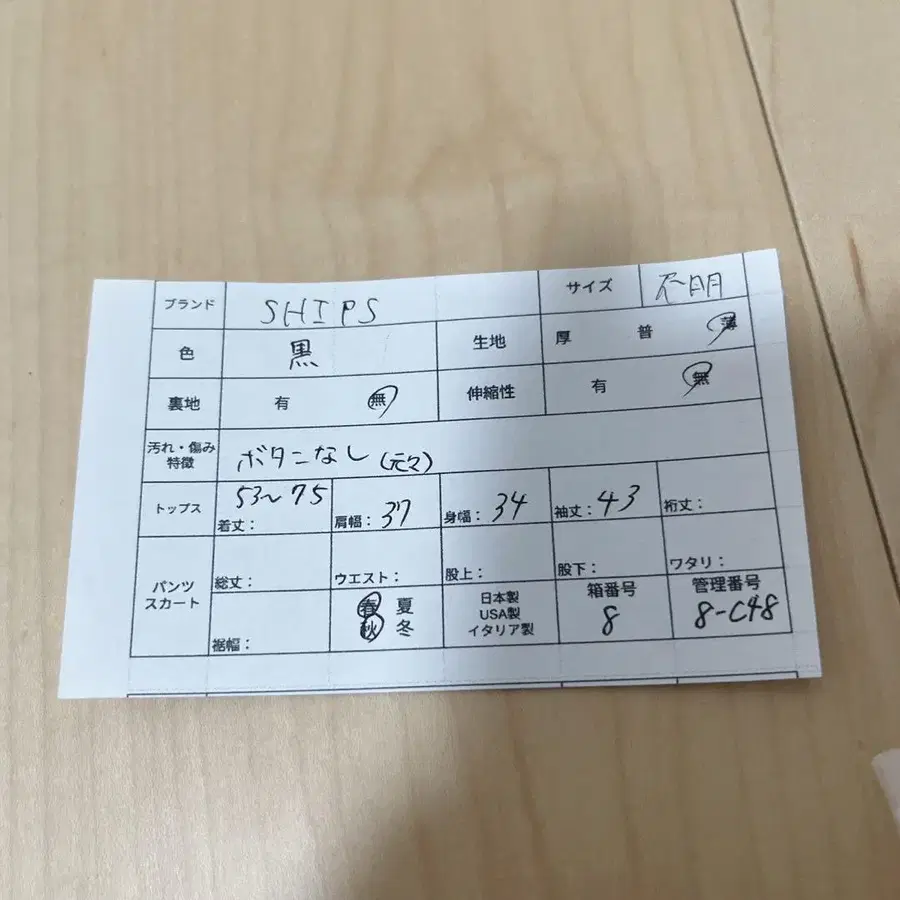 ブランド SHIPS サイズ 不明
色 黒 生地 厚 普 薄
裏地 有 無 伸縮性 有 無
汚れ・傷み
特徴 ボタンなし(元々)
トップス 着丈: 53~75 肩幅: 37 身幅: 34 袖丈: 43 裄丈:
パンツ
スカート 総丈: ウエスト: 股上: 股下: ワタリ:
裾幅: 春 夏
秋 冬
日本製
USA製
イタリア製
箱番号
8
管理番号
8-C48